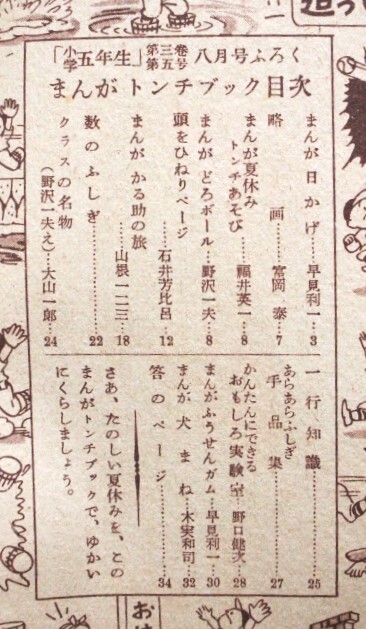 「小学五年生」第三巻第五号 八月号ふろく
まんが トンチブック目次
まんが 日かげ……早見利一…3
略画……富岡 泰…7
まんが夏休みトンチあそび……福井英一…8
まんが どろボール……野沢一夫…8
頭をひねりページ……石井芳比呂…12
まんが かる助の旅……山根一二三…18
数のふしぎ……22
クラスの名物……(野沢一夫え)…大山一郎…24
一行知識……25
あらあらふしぎ手品集……27
かんたんにできるおもしろ実験室…野口健次…28
まんがふうせんガム…早見利一…30
まんが 犬まね…木実和司…32
答のページ……34
さあ、たのしい夏休みを、この
まんがトンチブックで、ゆかい
にくらしましょう。
おは